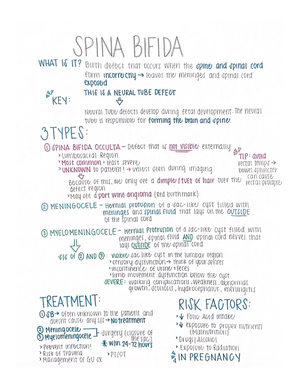 SPINA BIFIDA
WHAT IS IT? Birth defect that occurs when the spine and spinal cord
form incorrectly → leaves the meninges and spinal cord
exposed
THIS IS A NEURAL TUBE DEFECT
KEY:
Neural tube defects develop during fetal development. The neural
tube is responsible for forming the brain and spine.
3 TYPES:
① SPINA BIFIDA OCCULTA - Defect that is not visible externally
• Lumbosacral Region
• Most common + least severe
• UNKNOWN to patient! → unless seen during imaging
Because of this, may only see a dimple / tuft of hair over the
defect region
• May see a port wine angioma (like birthmark)
TIP: avoid
rectal temps →
bowel
can cause
rectal prolapse
② MENINGOCELE - Hernial protrusion of a sac-like cyst filled with
meninges and spinal fluid that lays on the OUTSIDE
of the spinal cord
③ MYELOMENINGOCELE - Hernial protrusion of a sac-like cyst filled with
meninges, spinal fluid AND spinal cord nerves that
lays OUTSIDE of the spinal cord
S/S OF ② AND ③ - Visible: sac like cyst in the lumbar region
• sensory dysfunction
• incontinence of urine + feces
• movement dysfunction below the cyst
SEVERE: walking complications, weakness, abnormal
growth, scoliosis, hydrocephalus, meningitis
TREATMENT:
① SB → often unknown to the patient and
doesn't cause any s/s → No treatment
② Meningocele
③ Myelomeningocele
surgery (closure of
the sac)
* w/in 24-72 hours
• Prevent infection!
• Risk of trauma
• Management of GU sx
• PT/OT
RISK FACTORS:
• ↓ Folic Acid intake
• ↓ exposure to proper nutrients
(malnutrition)
• Drugs / Alcohol
• Exposure to Radiation
IN PREGNANCY